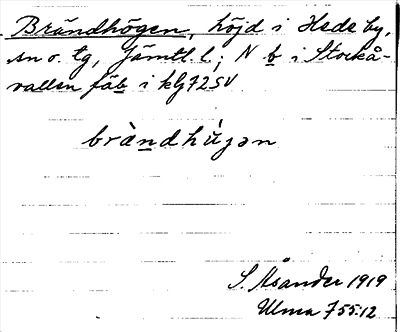 Brändhögen, höjd i Hede by,
sn o. tg, Jämtl. l.; N b i Stockå-
vallen fäb i kbl 72 SV
brändhúgən
S. Åsander 1919
Ulma 755:12